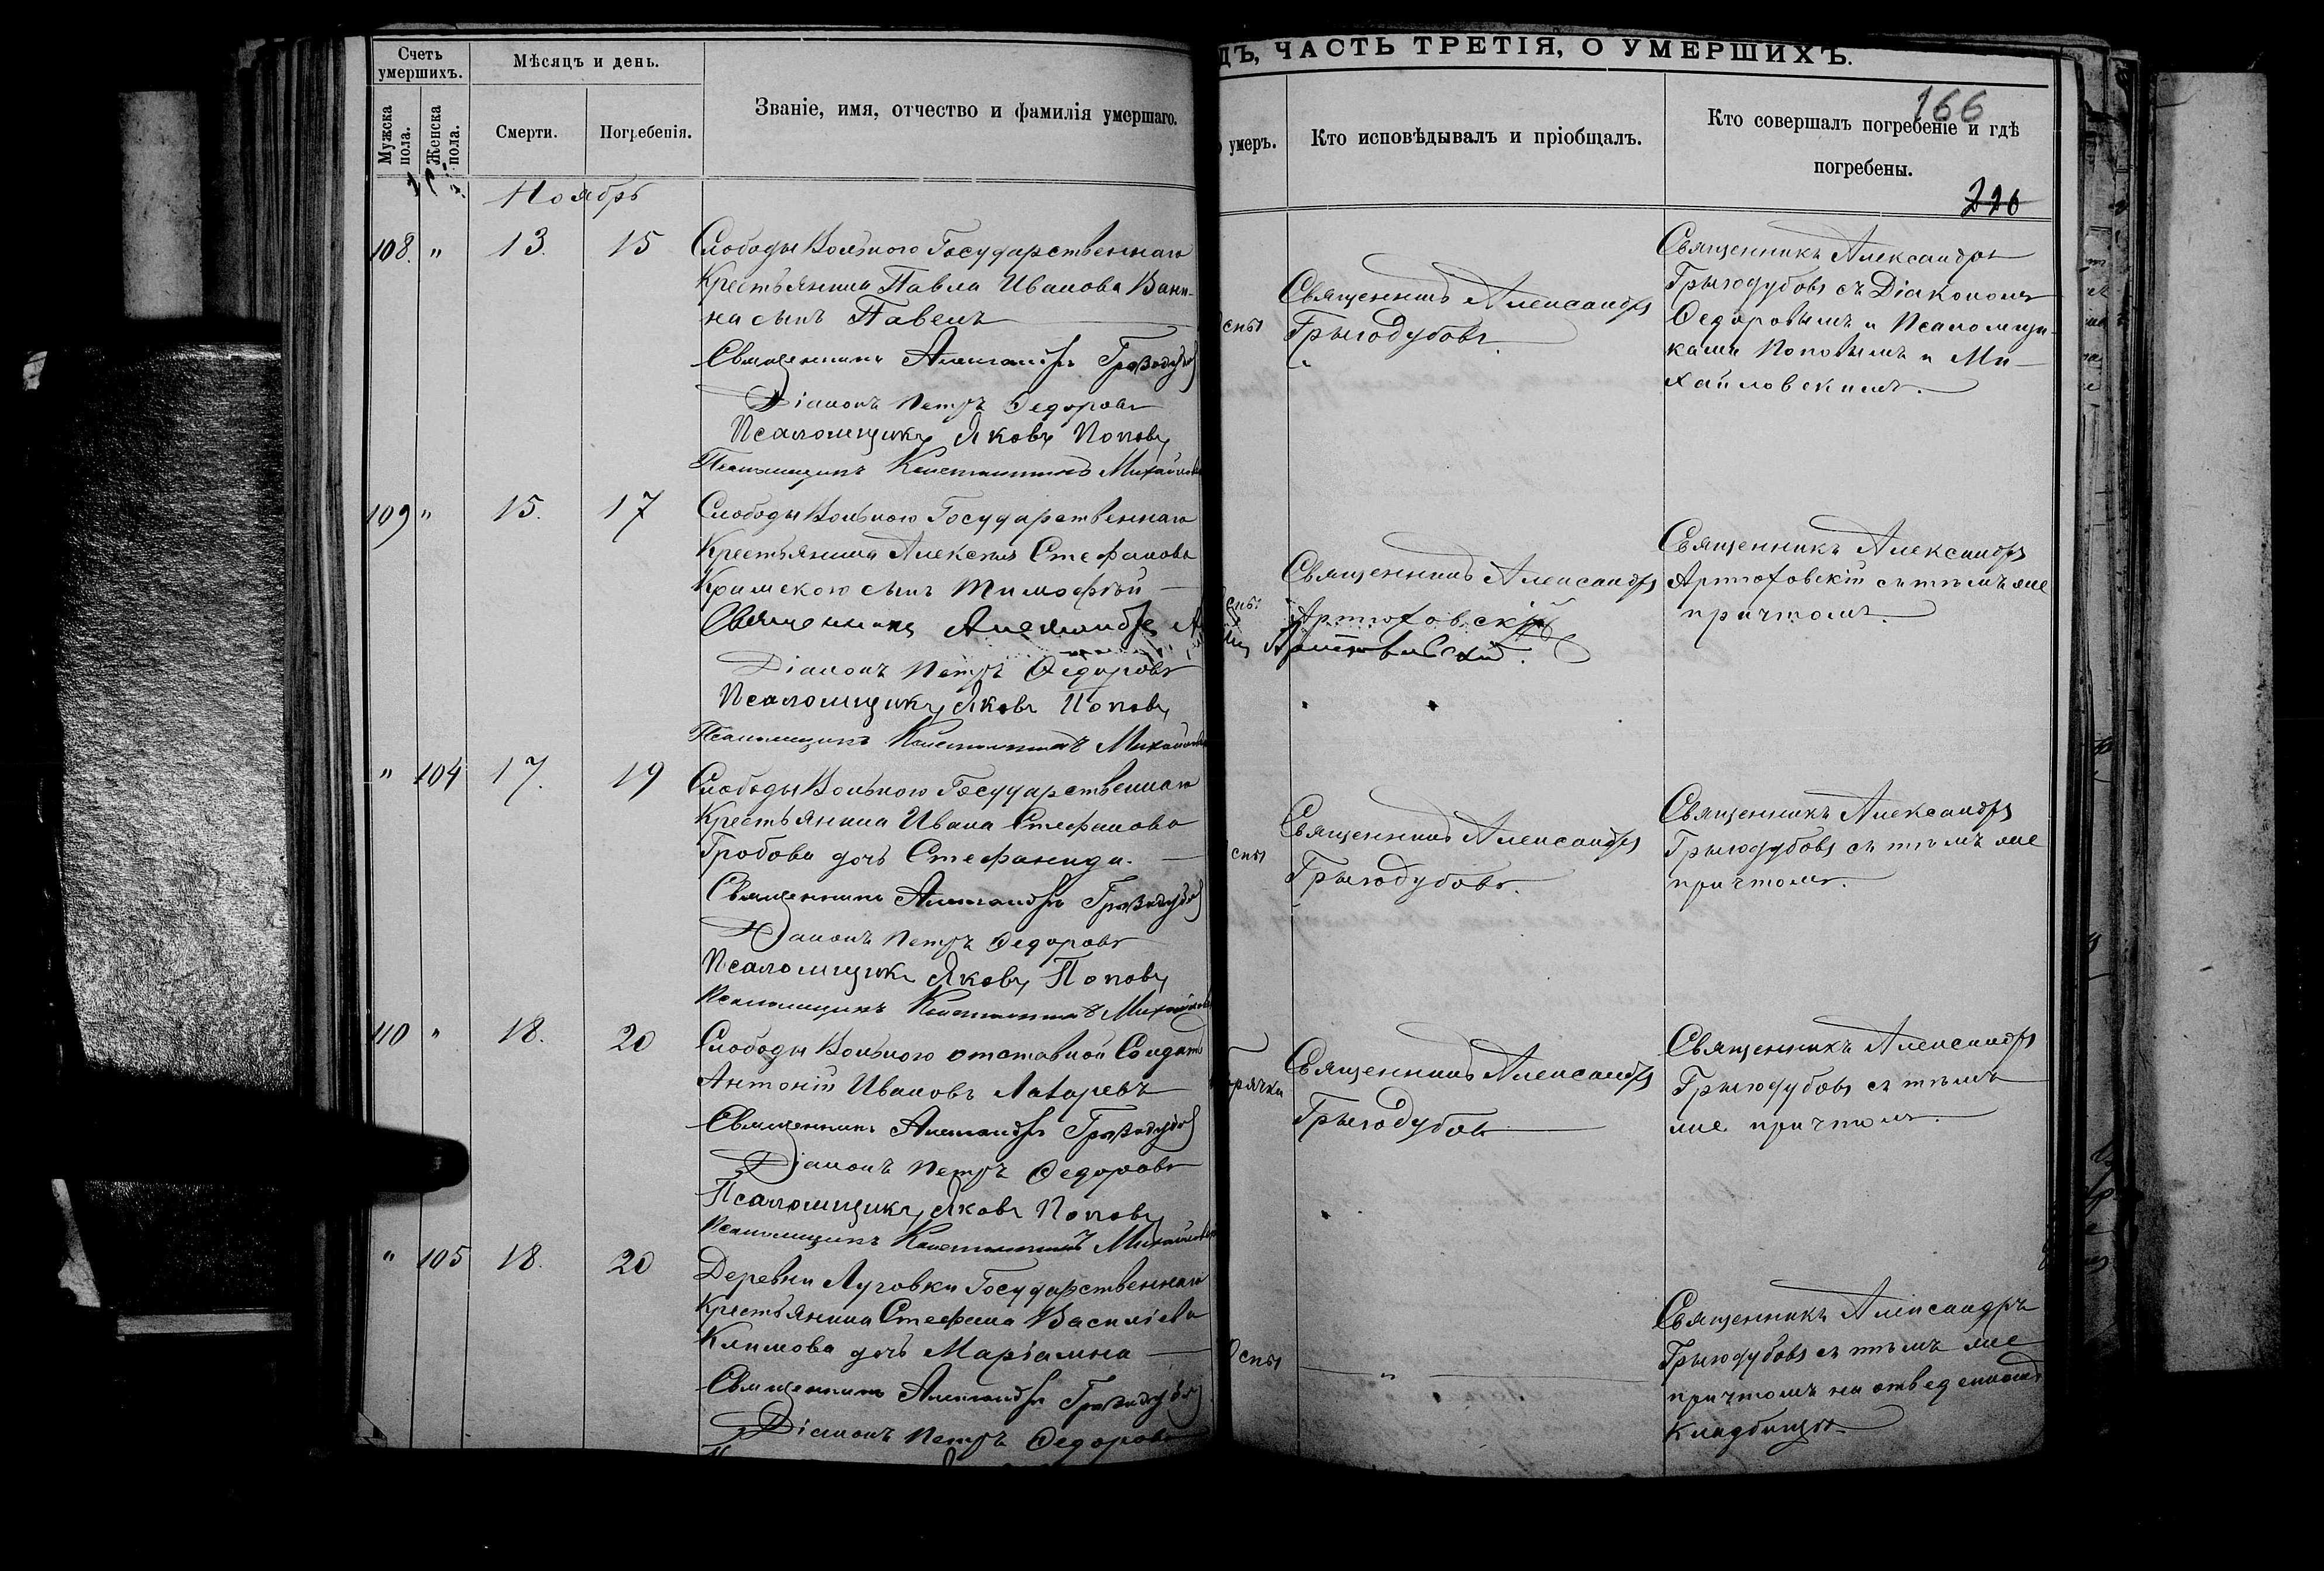 Счетъ умершихъ.
Мѣсяцъ и день.
Званіе, имя, отчество и фамилія умершаго.
Мужска пола.
Женска пола.
Смерти.
Погребенія.
Ноябрь
108. " 13. 15 Слободы Вольного Государственнаго
Крестьянина Павла Иванова Вани-
на сынъ Павелъ
Священникъ Александръ
Діаконъ Петръ Федоровъ
Псаломщикъ Яковъ Поповъ
Псаломщикъ Константинъ
109 " 15. 17 Слободы Вольного Государственнаго
Крестьянина Алексѣя Стефанова
Кримского сынъ Тимофѣй
Священникъ Александръ
Діаконъ Петръ Федоровъ
Псаломщикъ Яковъ Поповъ
Псаломщикъ Константинъ
" 104 17. 19 Слободы Вольного Государственнаго
Крестьянина Ивана Стефанова
Гробова дочь Стефанида.
Священникъ Александръ
Діаконъ Петръ Федоровъ
Псаломщикъ Яковъ Поповъ
Псаломщикъ Константинъ
110 " 18. 20 Слободы Вольного отставной Солдатъ
Антоній Ивановъ Лазаревъ
Священникъ Александръ
Діаконъ Петръ Федоровъ
Псаломщикъ Яковъ Поповъ
Псаломщикъ Константинъ
" 105 18. 20 Деревни Луговки Государственнаго
Крестьянина Стефана Василіева
Климова дочь Маріамна
Священникъ Александръ
Діаконъ Петръ Федоровъ
ДЪ, ЧАСТЬ ТРЕТІЯ, О УМЕРШИХЪ.
166
умеръ.
Кто исповѣдывалъ и пріобщалъ.
Кто совершалъ погребеніе и гдѣ
погребены.
226
Священникъ Александръ
Грызодубовъ.
Священникъ Александръ
Грызодубовъ съ Діакономъ
Федоровымъ и Псаломщи-
ками Поповымъ и Ми-
хайловскимъ.
Священникъ Александръ
Артюховскій
Священникъ Александръ
Артюховскій съ тѣмъ же
причтомъ.
Священникъ Александръ
Грызодубовъ.
Священникъ Александръ
Грызодубовъ съ тѣмъ же
причтомъ.
Священникъ Александръ
Грызодубовъ
Священникъ Александръ
Грызодубовъ съ тѣмъ
же причтомъ.
Оспы
"
Священникъ Александръ
Грызодубовъ съ тѣмъ же
причтомъ на отведенномъ
кладбищѣ.